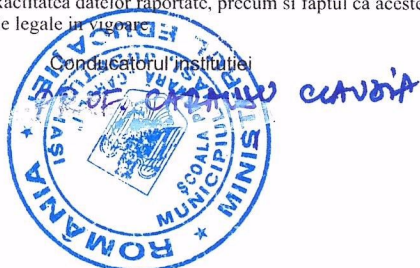 xactitatea datelor raportate, precum si faptul ca aceste
e legale in vigoare
Conducatorul institutiei
PROF. CLAUDIA
ROMÂNIA * MINISTERUL EDUCAȚIEI *
ȘCOALA
MUNICIPIUL IAȘI